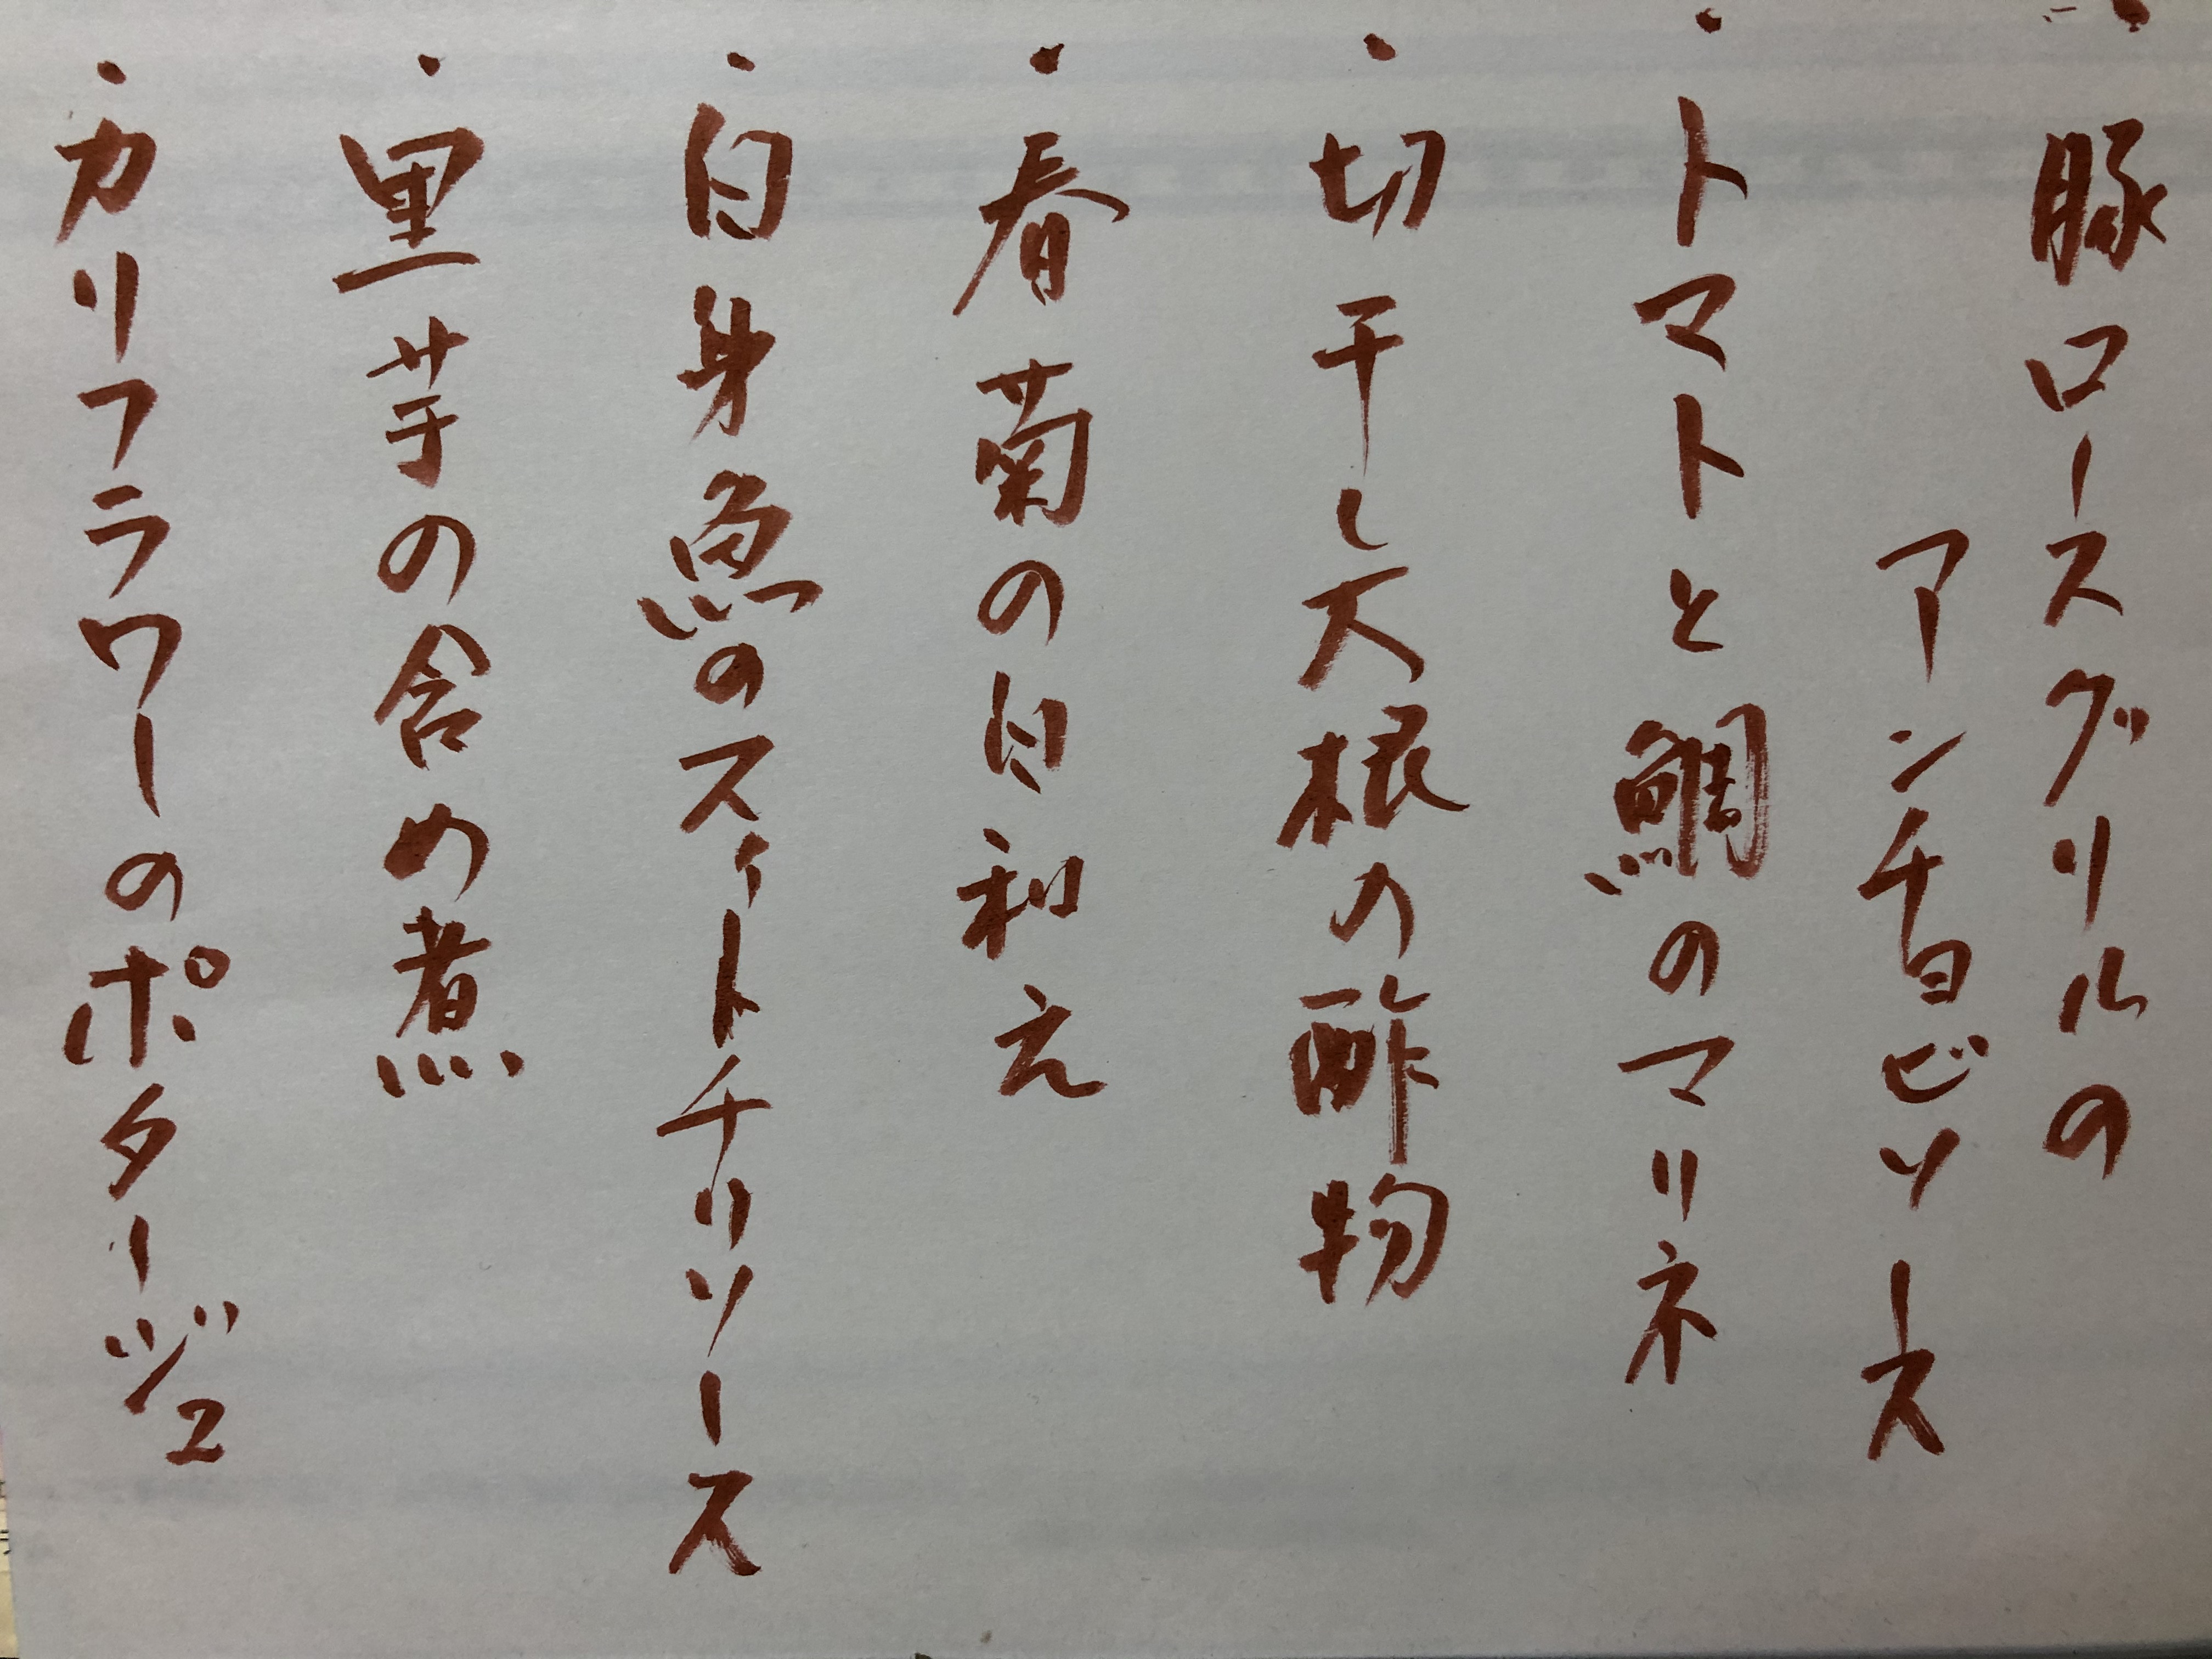 ・豚ロースグリルの
アンチョビソース
・トマトと鯛のマリネ
・切干し大根の酢物
・春菊の白和え
・白身魚のスイートチリソース
・里芋の含め煮
・カリフラワーのポタージュ